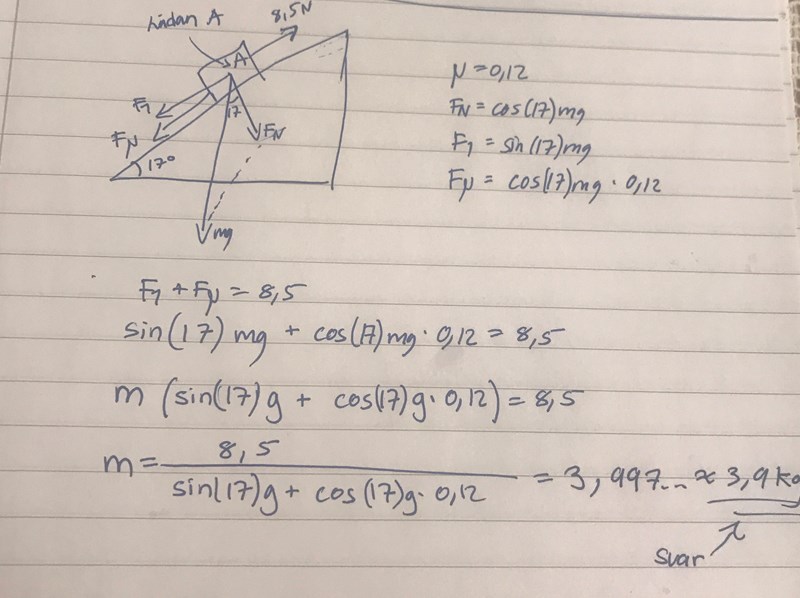 Lådan A
8,5N
A
F₁
Fμ
17
FN
17°
mg
μ=0,12
FN = cos(17)mg
F₁ = sin(17)mg
Fμ = cos(17)mg · 0,12
F₁ + Fμ = 8,5
sin(17) mg + cos(17)mg · 0,12 = 8,5
m (sin(17)g + cos(17)g · 0,12) = 8,5
m = 8,5 / (sin(17)g + cos(17)g · 0,12) = 3,997... ≈ 3,9 kg
Svar